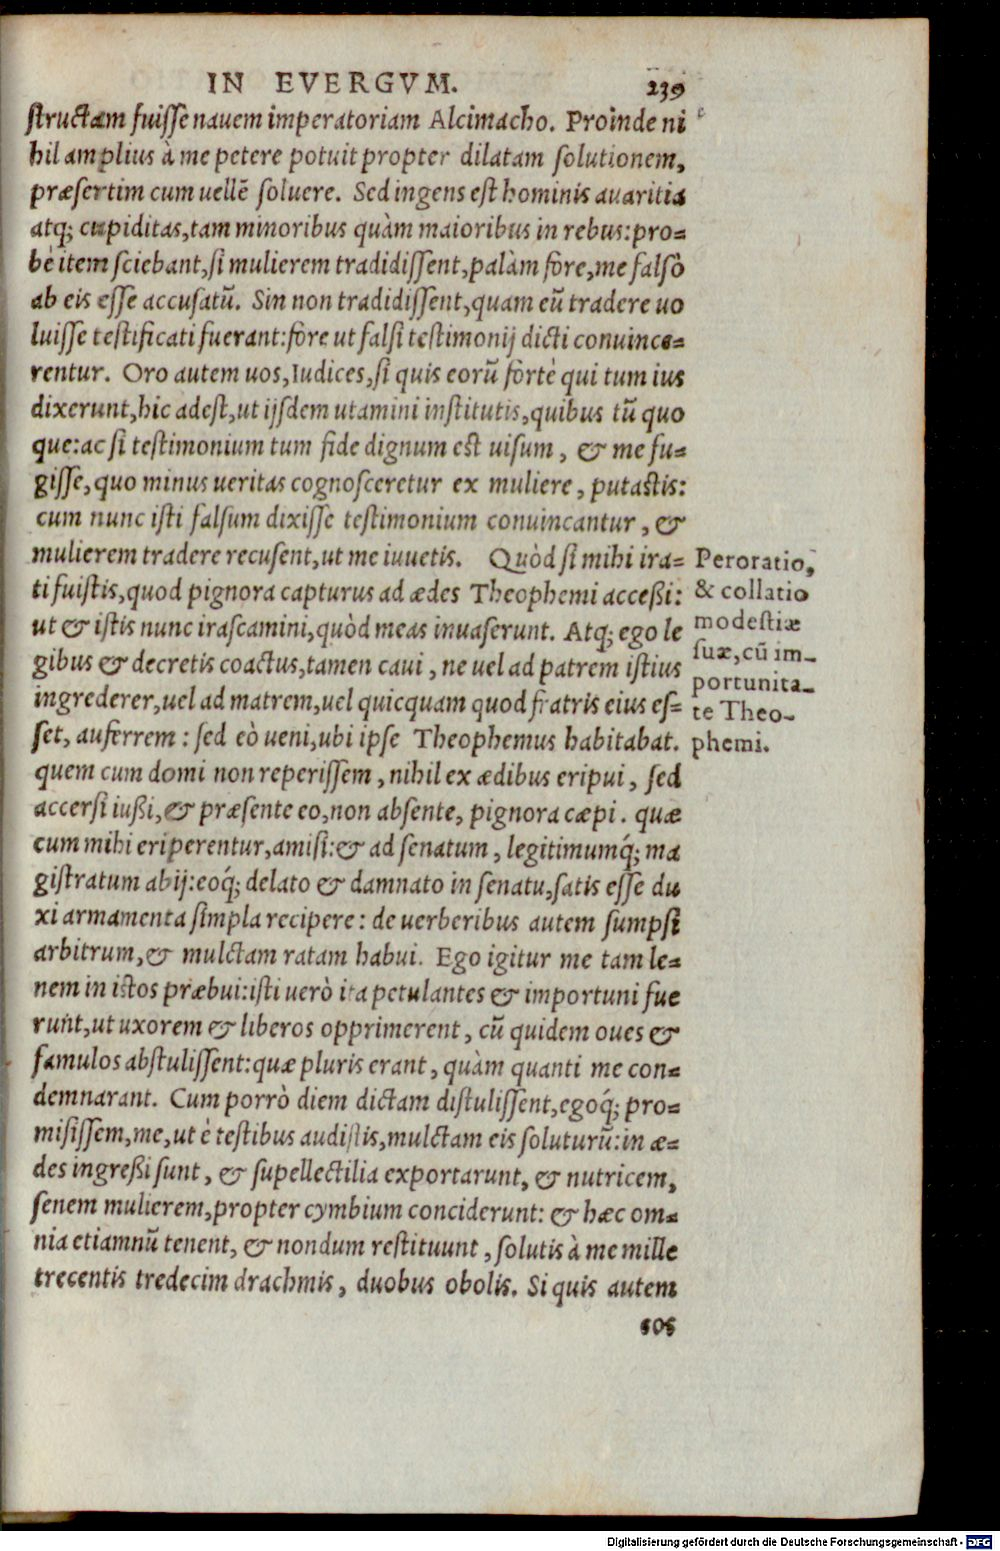 IN EVERGVM. 239
structam fuisse nauem imperatoriam Alcimacho. Proinde ni
hil amplius à me petere potuit propter dilatam solutionem,
præsertim cum uellē soluere. Sed ingens est hominis auaritia
atq; cupiditas, tam minoribus quàm maioribus in rebus: pro-
bè item sciebant, si mulierem tradidissent, palàm fore, me falsò
ab eis esse accusatū. Sin non tradidissent, quam eū tradere uo
luisse testificati fuerant: fore ut falsi testimonij dicti conuince-
rentur. Oro autem uos, Iudices, si quis eorū fortè qui tum ius
dixerunt, hic adest, ut ijsdem utamini institutis, quibus tū quo
que: ac si testimonium tum fide dignum est uisum, & me fu-
gisse, quo minus ueritas cognosceretur ex muliere, putastis:
cum nunc isti falsum dixisse testimonium conuincantur, &
mulierem tradere recusent, ut me iuuetis. Quòd si mihi ira-
ti fuistis, quod pignora capturus ad ædes Theophemi accessi:
ut & istis nunc irascamini, quòd meas inuaserunt. Atq; ego le
gibus & decretis coactus, tamen caui, ne uel ad patrem istius
ingrederer, uel ad matrem, uel quicquam quod fratris eius es-
set, auferrem: sed eò ueni, ubi ipse Theophemus habitabat.
quem cum domi non reperissem, nihil ex ædibus eripui, sed
accersi iussi, & præsente eo, non absente, pignora cæpi. quæ
cum mihi eriperentur, amisi: & ad senatum, legitimumq́; ma
gistratum abij: eoq́; delato & damnato in senatu, satis esse du
xi armamenta simpla recipere: de uerberibus autem sumpsi
arbitrum, & mulctam ratam habui. Ego igitur me tam le-
nem in istos præbui: isti uerò ita petulantes & importuni fue
runt, ut uxorem & liberos opprimerent, cū quidem oues &
famulos abstulissent: quæ pluris erant, quàm quanti me con-
demnarant. Cum porrò diem dictam distulissent, egoq́; pro-
misissem, me, ut è testibus audistis, mulctam eis soluturū: in æ-
des ingressi sunt, & supellectilia exportarunt, & nutricem,
senem mulierem, propter cymbium conciderunt: & hæc om-
nia etiamnū tenent, & nondum restituunt, solutis à me mille
trecentis tredecim drachmis, duobus obolis. Si quis autem
eos
Peroratio,
& collatio
modestiæ
suæ, cū im-
portunita-
te Theo-
phemi.
Digitalisierung gefördert durch die Deutsche Forschungsgemeinschaft - DFG